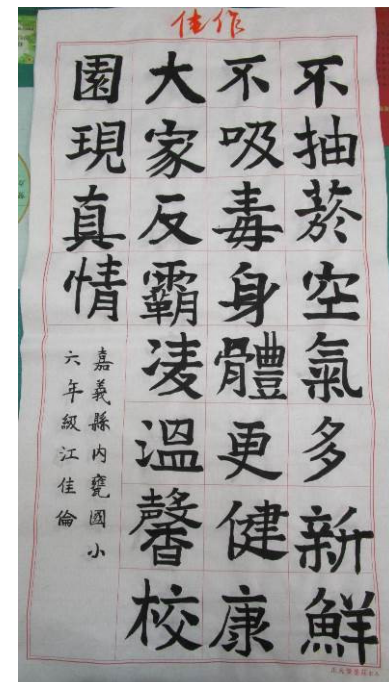 佳作
不抽菸空氣多新鮮
不吸毒身體更健康
大家反霸凌溫馨校
園現真情
嘉義縣內甕國小
六年級江佳倫